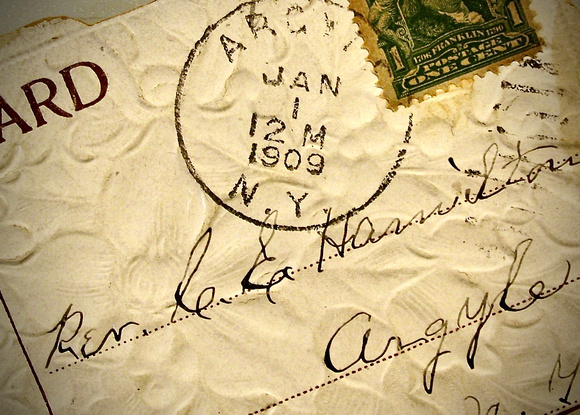 ARD
ARGY
JAN
1
12 M
1909
N.Y.
1706 FRANKLIN 1790
POSTAGE
1 ONE CENT 1
Rev. C. E. Hamilton
Argyle
N. Y